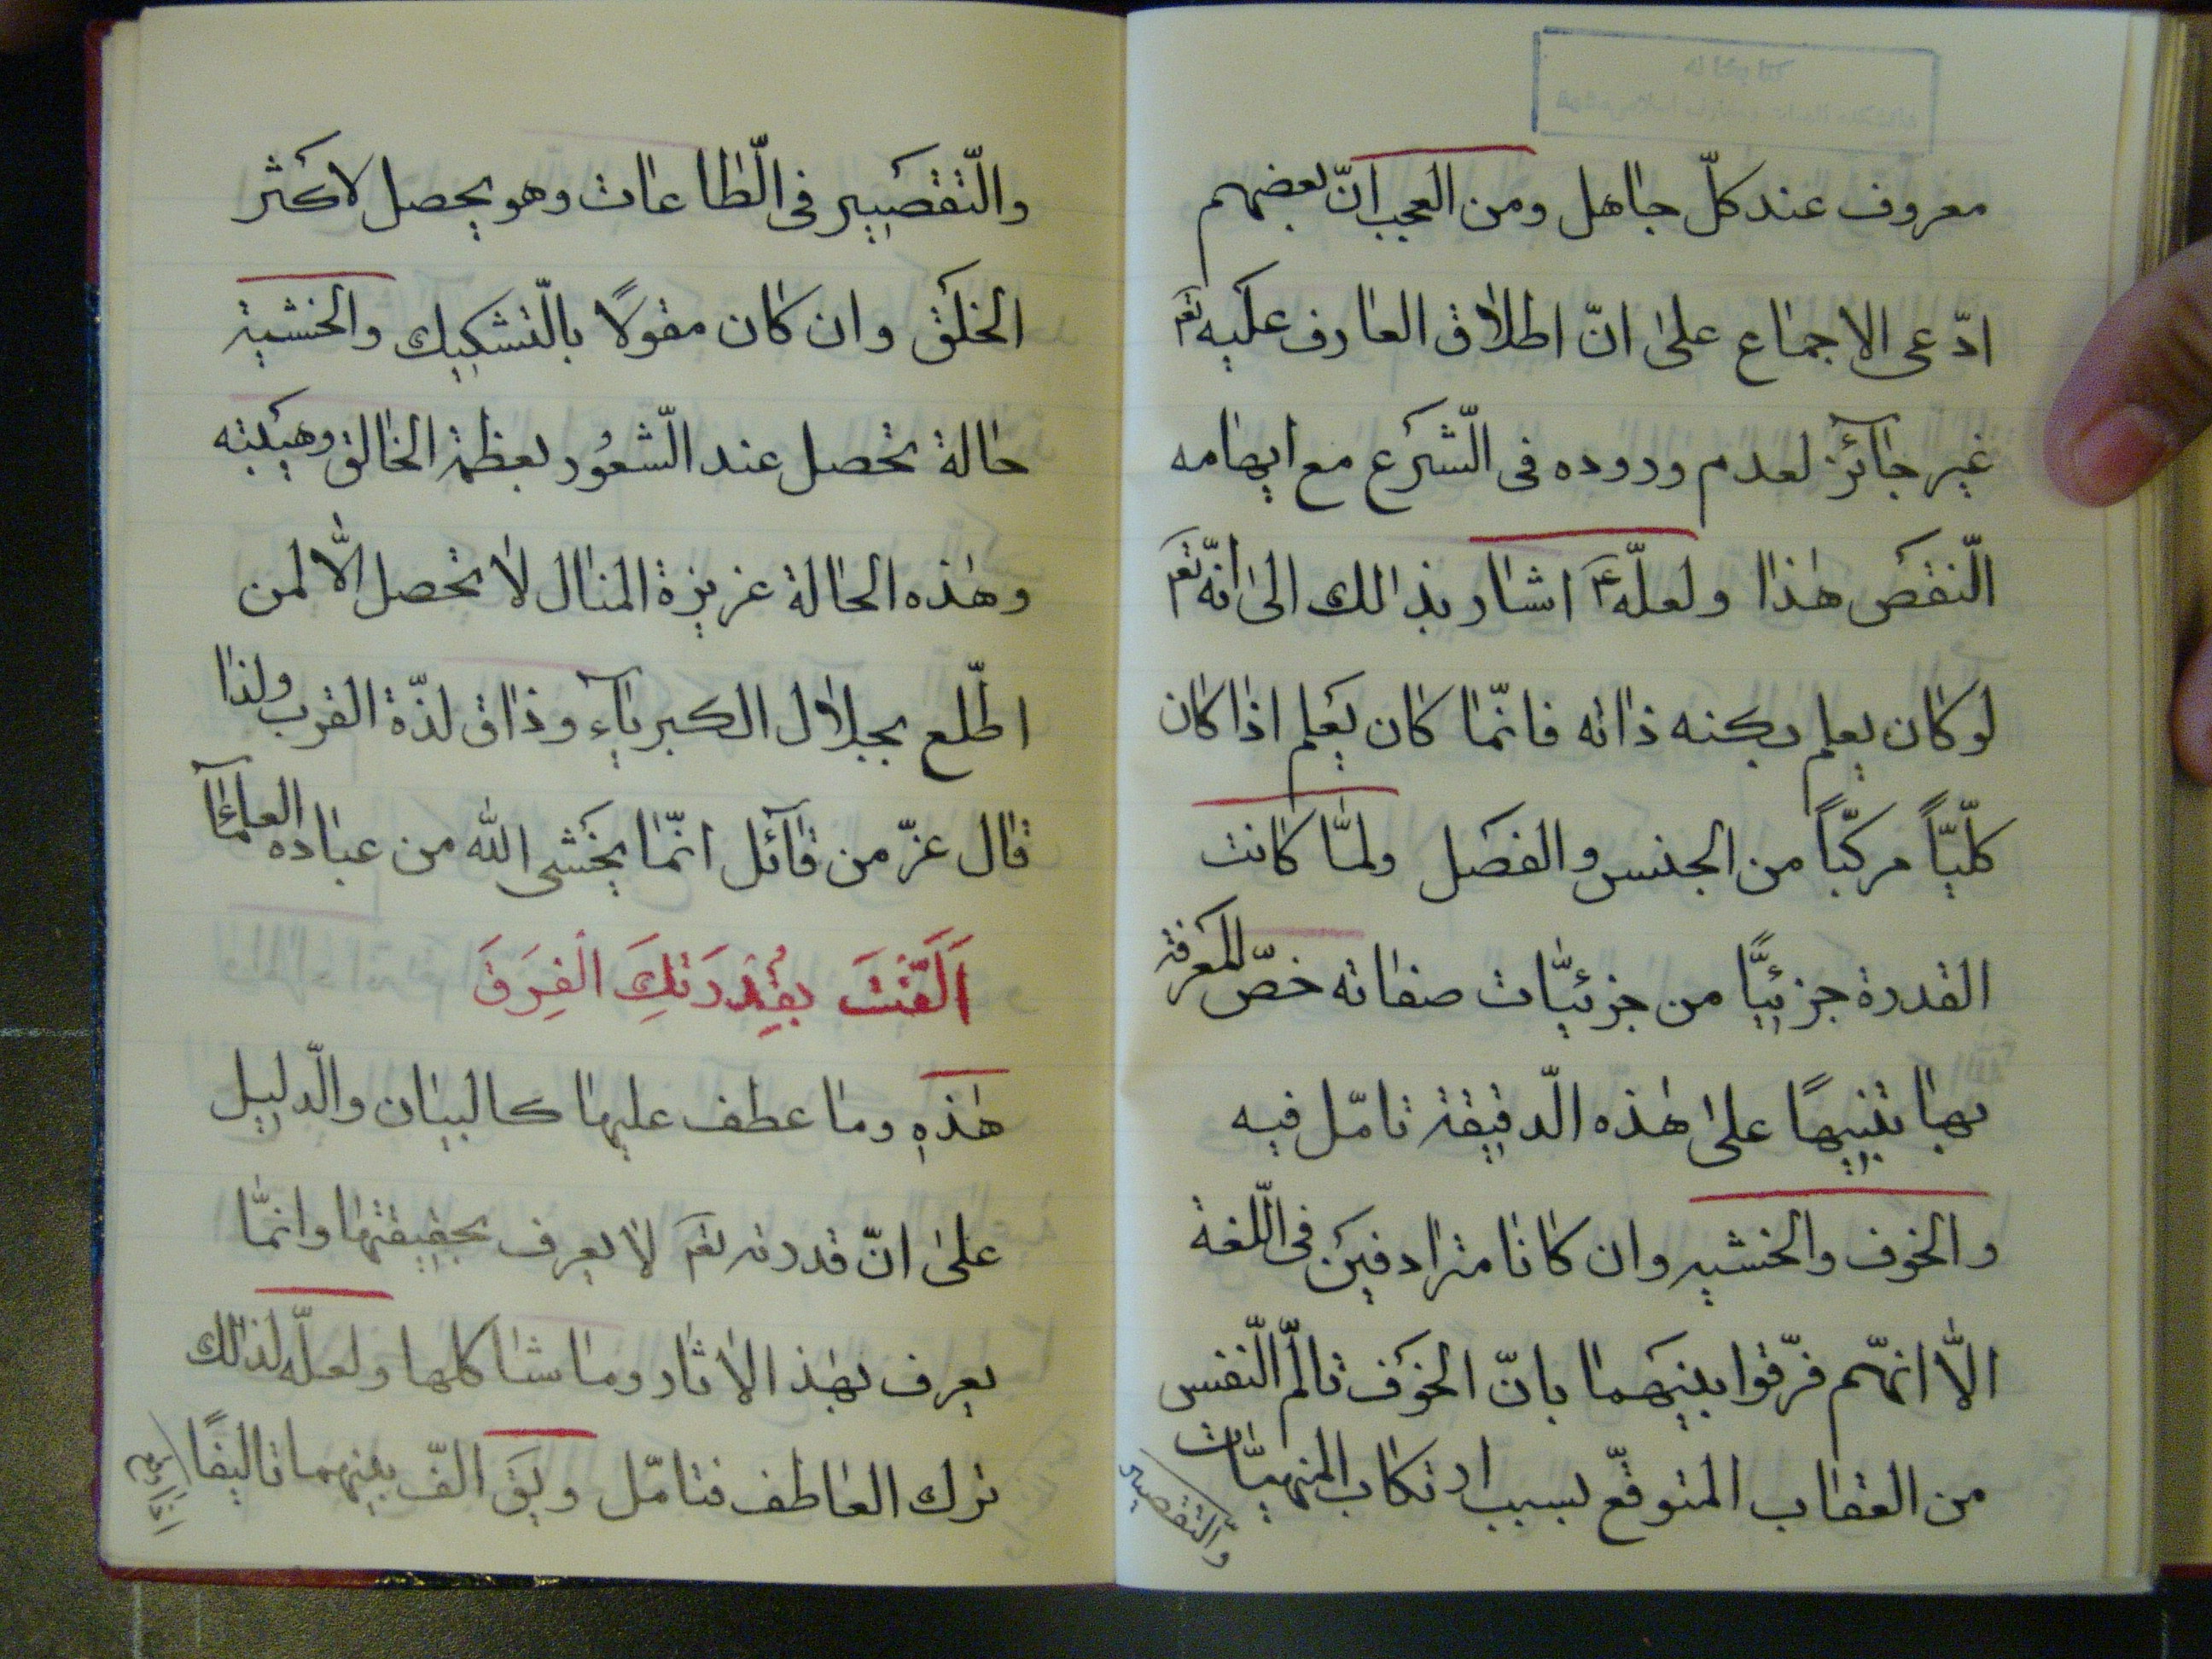 معروف عند كلّ جاهل ومن العجب انّ بعضهم
ادّعى الاجماع على انّ اطلاق العارف عليه تعم
غير جآئز لعدم وروده فى الّشرع مع ايهامه
الّنقص هذا ولعلّه ع اشار بذالك الى انّه تعم
لو كان يعلم بكنه ذاته فانّما كان يعلم اذا كان
كلّيّاً مركّباً من الجنس والفصل ولمّا كانت
القدرة جزئيًّا من جزئيّات صفاته خصّ المعرفة
بها تنبيهًا على هذه الّدقيقة تامّل فيه
والخوف والخشيه وان كانا مترادفين فى الّلغة
الاّ انهّم فرّقوا بينهما بانّ الخوف تالّم الّنفس
من العقاب المتوقّع بسبب ارتكاب المنهيّات
والّتقصير
والّتقصير فى الّطاعات وهو يحصل لاكثر
الخلق وان كان مقولاً بالّتشكيك والخشية
حالة تحصل عند الّشعُور بعظمة الخالق وهيبته
وهذه الحالة عزيزة المنال لا تحصل الاّ لمن
اطّلع بجلال الكبريآء وذاق لذّة القرب ولذا
قال عزّ من قآئل انّما يخشى الله من عباده العلمآء
اَلَّفْتَ بِقُدْرَتِكَ الْفِرَقَ
هذهِ وما عطف عليها كالبيان والّدليل
على انّ قدرته تعم لا يعرف بحقيقتها وانمّا
يعرف بهذ الاثار وما شاكلها ولعلّه لذلك
ترك العاطف فتامّل ويَق الّف بينهما تاليفًا